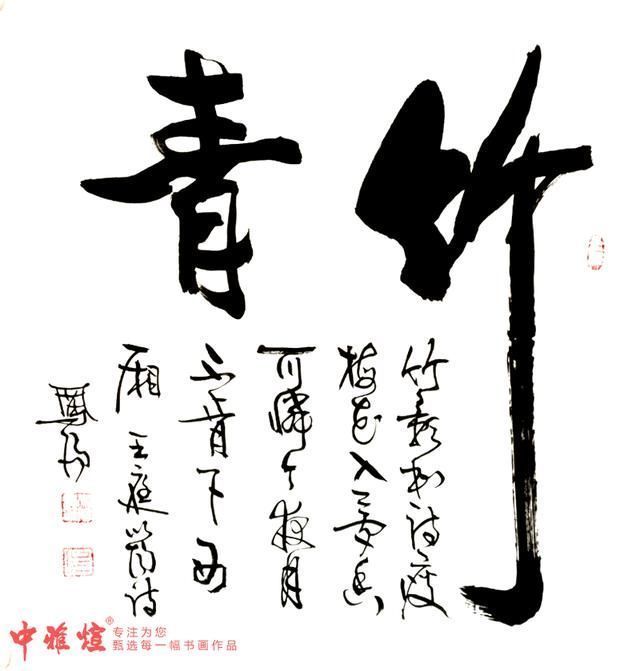 竹青
竹影和诗瘦
梅花入夢香
可憐今夜月
不肯下西
厢 王庭筠诗
中雅煊®
专注为您
甄选每一幅书画作品